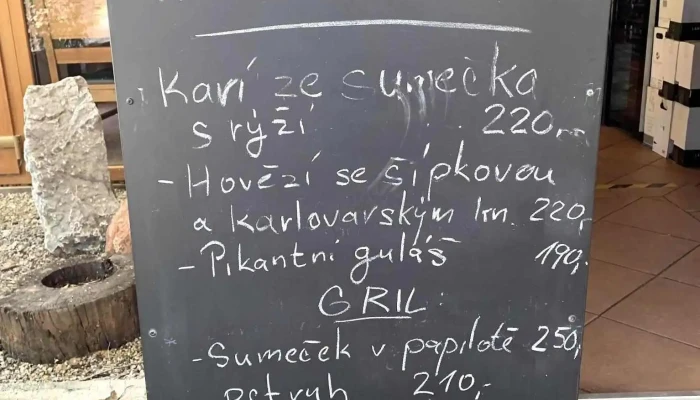 Karí ze sumečka
s rýží 220,-
- Hovězí se šípkovou
a Karlovarským kn. 220,-
- Pikantní guláš 190,-
GRIL:
- Sumeček v papilotě 250,-
pstruh 210,-